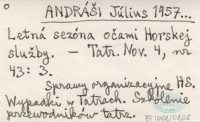 ANDRÁŠI Július 1957...
Letná sezóna očami Horskej
služby. – Tatr. Nov. 4, nr
43: 3.
Sprawy organizacyjne HS.
Wypadki w Tatrach. Szkolenie
przewodników tatrz.